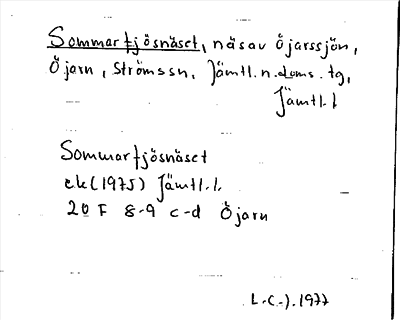 Sommarfjösnäset, näsav Öjarssjön,
Öjarn, Strömssn, Jämtl.n.doms.tg,
Jämtl.l
Sommarfjösnäset
ek(1975) Jämtl.l.
20 F 8-9 c-d Öjarn
L.C-).1977